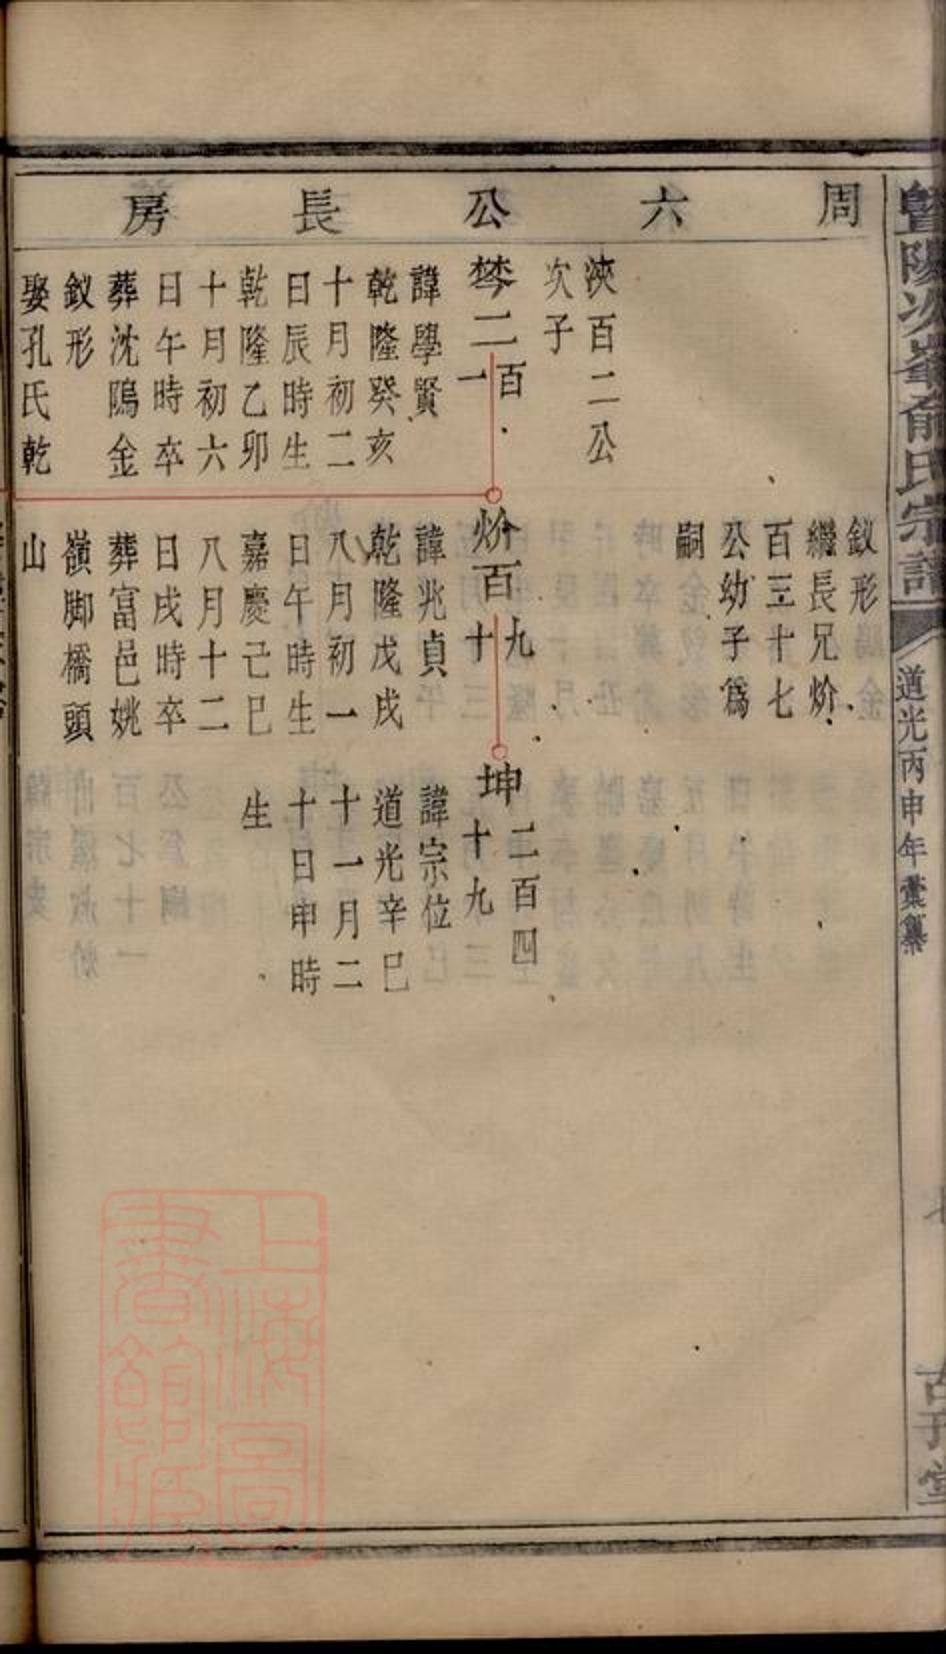 暨陽次峯俞氏宗譜
道光丙申年彚纂
周六公長房
釵形
繼長兄炌
百三十七
公幼子爲
嗣
浹百二公
次子
棼二百一
諱學賢
乾隆癸亥
十月初二
日辰時生
乾隆乙卯
十月初六
日午時卒
葬沈隝金
釵形
娶孔氏乾
炌百九十
諱兆貞
乾隆戊戌
八月初一
日午時生
嘉慶己巳
八月十二
日戌時卒
葬富邑姚
嶺脚橋頭
山
坤二百四十九
諱宗位
道光辛巳
十一月二
十日申時
生
上海圖書館藏